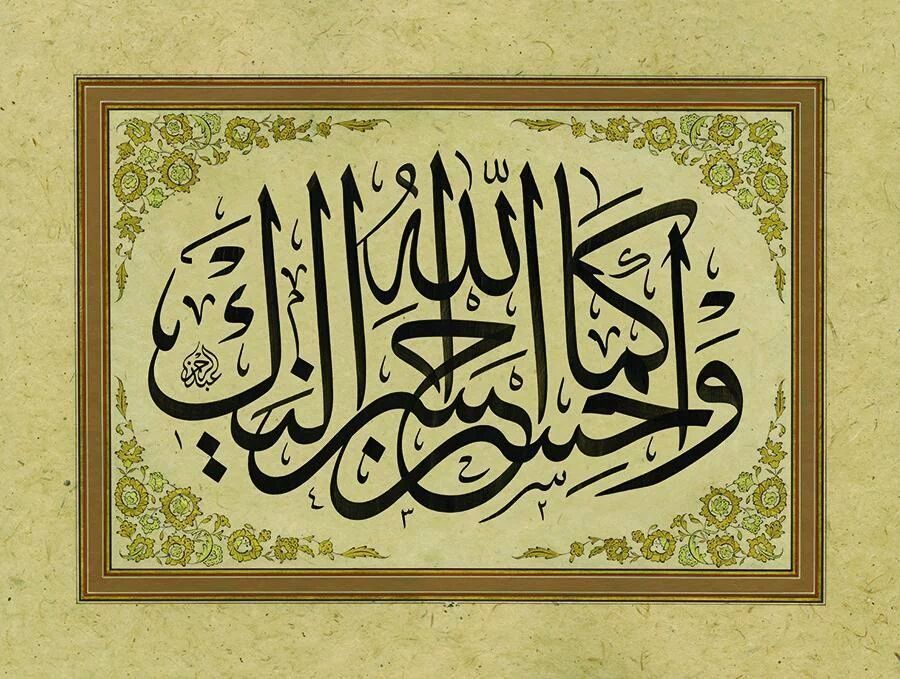 وَأَحْسِنْ كَمَا أَحْسَنَ اللّٰهُ إِلَيْكَ
١٤٣٢